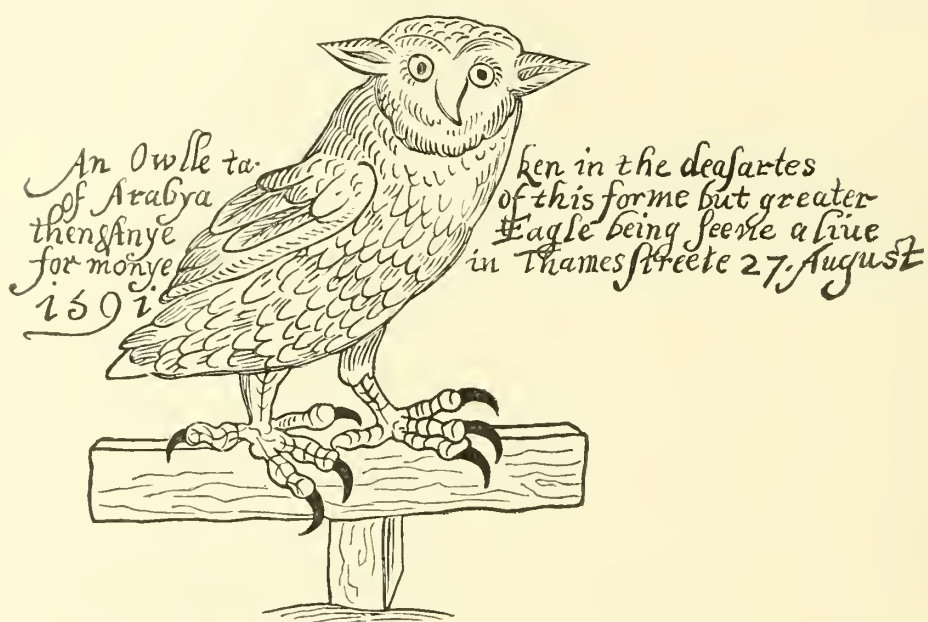 An Owlle ta- ken in the deaſartes
of Arabya of this forme but greater
then Anye Eagle being ſeene aliue
for monye in Thames ſtreete 27. August
1591